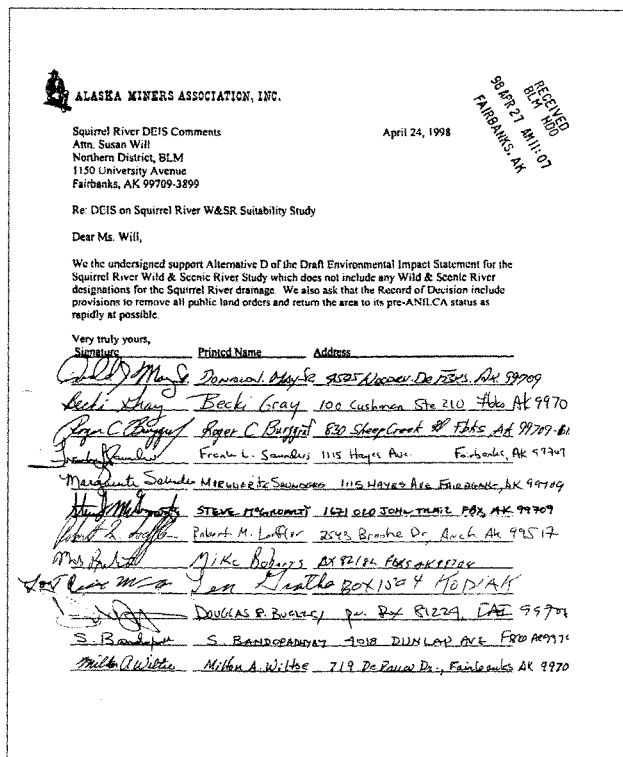 ALASKA MINERS ASSOCIATION, INC.
RECEIVED
BLM NDO
98 APR 27 AM 11:07
FAIRBANKS, AK
Squirrel River DEIS Comments April 24, 1998
Attn. Susan Will
Northern District, BLM
1150 University Avenue
Fairbanks, AK 99709-3899
Re: DEIS on Squirrel River W&SR Suitability Study
Dear Ms. Will,
We the undersigned support Alternative D of the Draft Environmental Impact Statement for the
Squirrel River Wild & Scenic River Study which does not include any Wild & Scenic River
designations for the Squirrel River drainage. We also ask that the Record of Decision include
provisions to remove all public land orders and return the area to its pre-ANILCA status as
rapidly at possible.
Very truly yours,
Signature Printed Name Address
May Sr AK 99709
Becki Gray Becki Gray 100 Cushman Ste 210 Fbks AK 9970
Roger C Burggraf Roger C Burggraf 830 Sheep Creek Rd Fbks, AK 99709
Frank L. Saunders 1115 Hayes Ave. Fairbanks, AK 99709
Marguerite Saunders MARGUERITE SAUNDERS 1115 HAYES AVE FAIRBANKS, AK 99709
STEVE MCGROARTY 1671 OLD JOHN TRAIL FBX, AK 99709
Robert M. Loeffler 2543 Brooke Dr, Anch AK 99517
Mike FBKS AK
BOX 1504 KODIAK
DOUGLAS B. P.O. Box 81224, FAI
S. Bandopa S. BANDOPADHYAY 4018 DUNLAP AVE
Milton A Wiltse Milton A. Wiltse 719 De Pauw Dr., Fairbanks AK 9970